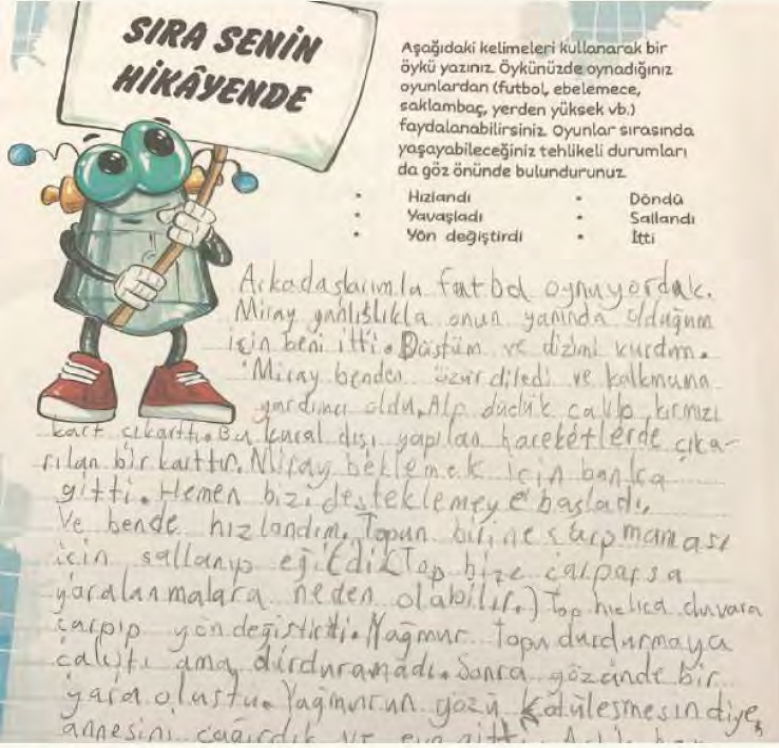 SIRA SENİN
HİKÂYENDE
Aşağıdaki kelimeleri kullanarak bir
öykü yazınız. Öykünüzde oynadığınız
oyunlardan (futbol, ebelemece,
saklambaç, yerden yüksek vb.)
faydalanabilirsiniz. Oyunlar sırasında
yaşayabileceğiniz tehlikeli durumları
da göz önünde bulundurunuz.
• Hızlandı • Döndü
• Yavaşladı • Sallandı
• Yön değiştirdi • İtti
Arkadaşlarımla futbol oynuyordak.
Miray yanlışlıkla onun yanında olduğum
için beni itti. Düştüm ve dizimi kırdım.
Miray benden özür diledi ve kalkmama
yardımcı oldu. Alp düdük çalıp kırmızı
kart çıkarttı. Bu kural dışı yapılan hareketlerde çıka-
rılan bir karttır. Miray beklemek için banka
gitti. Hemen bizi desteklemeye başladı.
Ve bende hızlandım. Topun birine çarpmaması
için sallanıp eğildik (Top bize çarparsa
yaralanmalara neden olabilir.) Top hızlıca duvara
çarpıp yön değiştirdi. Yağmur Topu durdurmaya
çalıştı ama durduramadı. Sonra gözünde bir
yara oluştu. Yağmurun gözü kötüleşmesin diye
annesini çağırdık ve